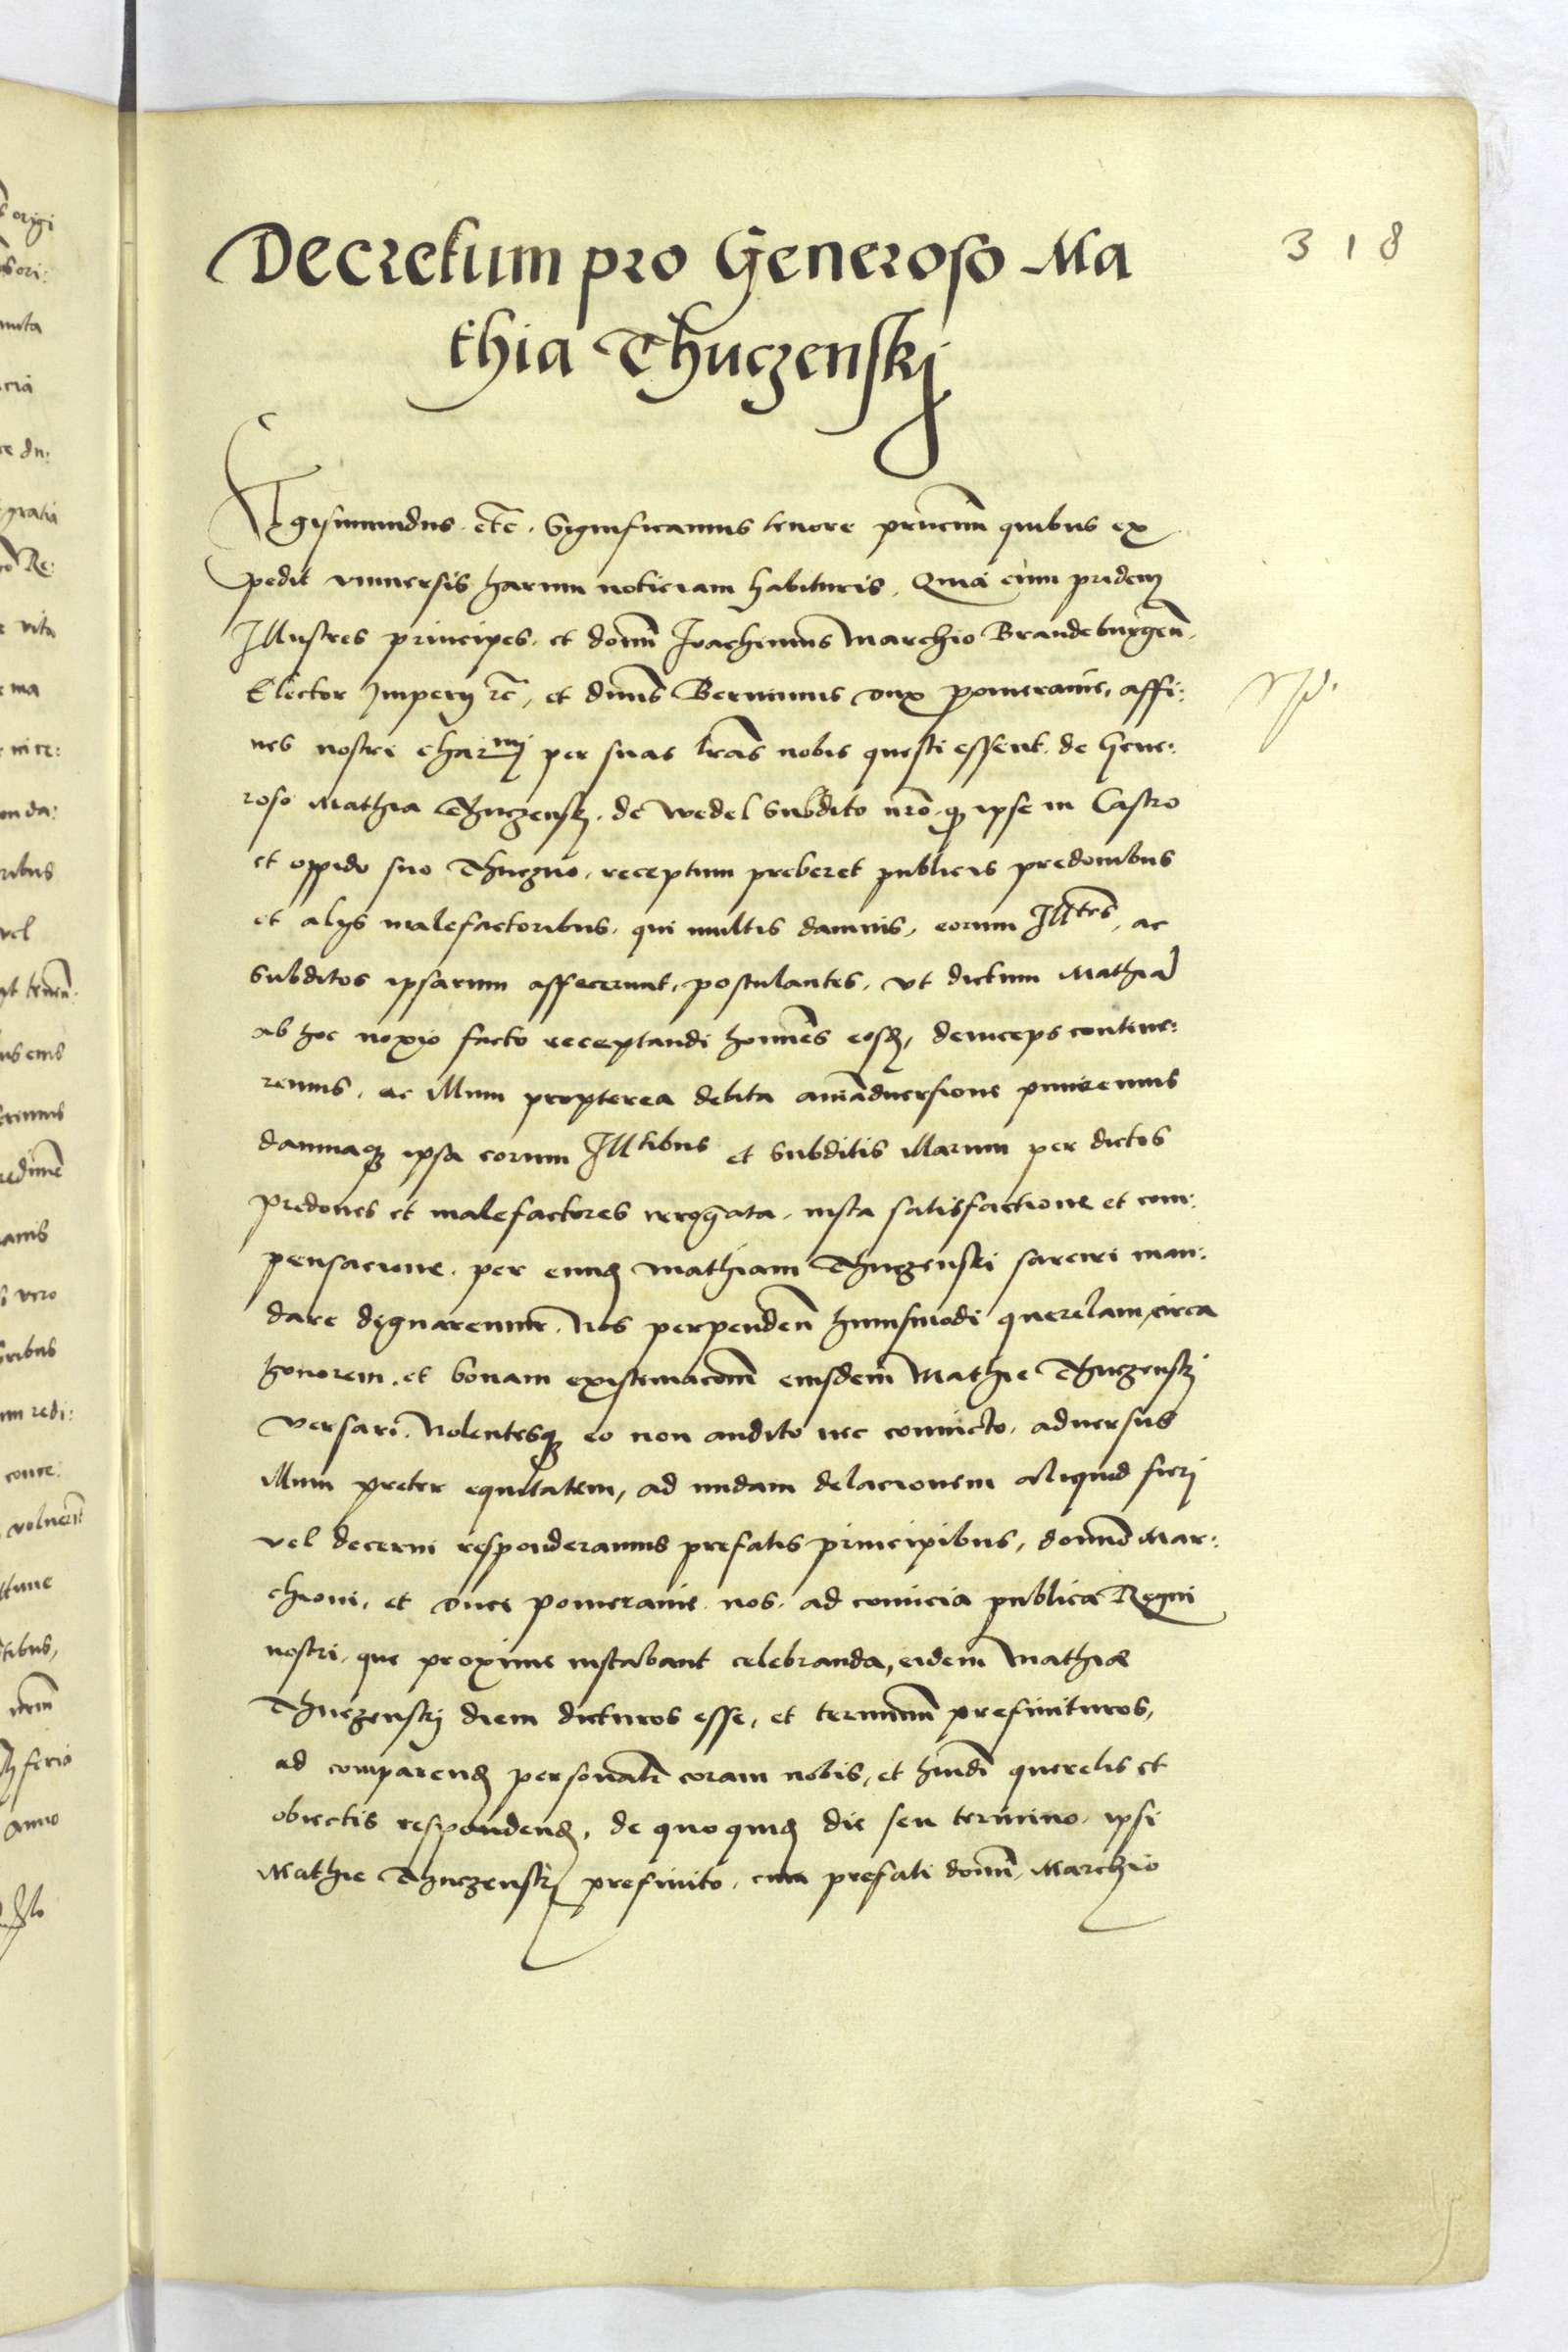 318
Decretum pro Generoso Ma
thia Thuczenskj
Sigismundus. etc. Significamus tenore pñcium quibus ex
pedit vniuersis harum noticiam habituris. Quia cum pridem
Illustres principes. et domñ Joachimus Marchio Brandeburgeñ.
Elector Imperij rc, et dmñs Berninus dux pomeranie, affi:
nes nostri charmi per suas lras nobis questi essent. de Gene:
roso Mathia Thuczensky. de wedel Subdito nrõ. q ipse in Castro
et oppido suo Thuczno. receptum preberet publicis predonibus
et alijs malefactoribus. qui multis damnis, eorum Illtes, ac
Subditos ipsarum affecerunt, postulantes, vt dictum Mathiã
ab hoc noxio facto receptandi homines eosd, deinceps contine:
remus. ac illum propterea debita aniãduersione puniremus
damnaq ipsa eorum Illtibus et Subditis illarum per dictos
predones et malefactores irrogata. iusta satisfactione et com:
pensacione. per eund Mathiam Thuczenski sarciri man:
dare dignaremur. Nos perpendeñ huiusmodi querelam, circa
honorem. et bonam existimacõm eiusdem Mathie Thuczenskj
versari. Nolentesq eo non audito nec conuicto, aduersus
illum preter equitatem, ad nudam delacionem aliquid fierj
vel decerni responderamus prefatis principibus, domino Mar:
chioni, et duci pomeranie. nos. ad comicia publica Regni
nostri, que proxime instabant celebranda, eidem Mathiæ
Thuczenskj diem dicturos esse, et terminum prefinituros,
ad comparend personalr coram nobis, et huiusmodi querelis et
obiectis respondend, de quo quid die seu termino. ipsi
Mathie Thuczenskj prefinito. cum prefati domñ. Marchio